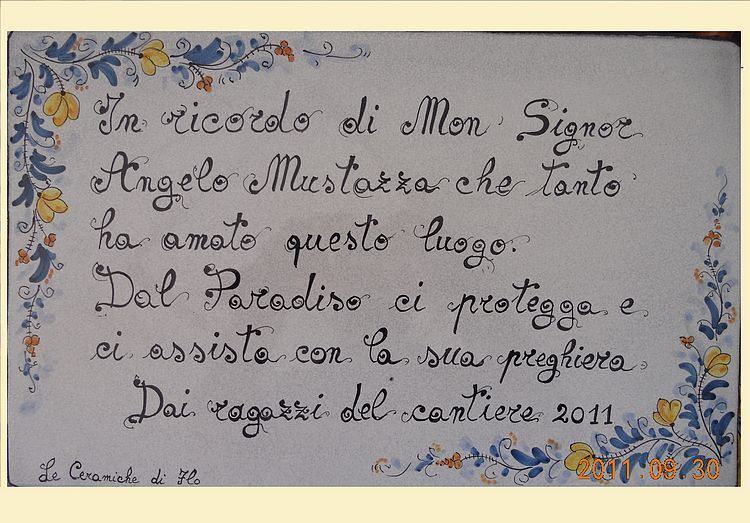 In ricordo di Mon Signor
Angelo Mustazza che tanto
ha amato questo luogo.
Dal Paradiso ci protegga e
ci assista con la sua preghiera
Dai ragazzi del cantiere 2011
Le Ceramiche di Flo
2011.09.30